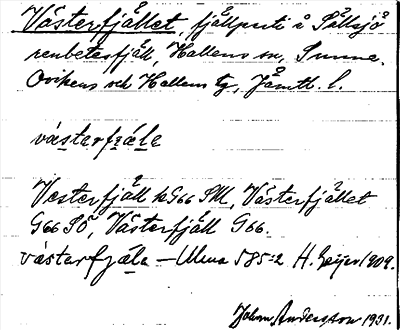 Västerfjället, fjällparti å Sällsjö
renbetesfjäll, Hallens sn, Sunne,
Ovikens och Hallens tg, Jämtl. l.
västerfjäle
Vesterfjäll kG66 SM, Västerfjället
G66 SÖ, Västerfjäll G66.
västarfjäla – Ulma 585:2 H. Geijer 1909.
Johan Andersson 1931.